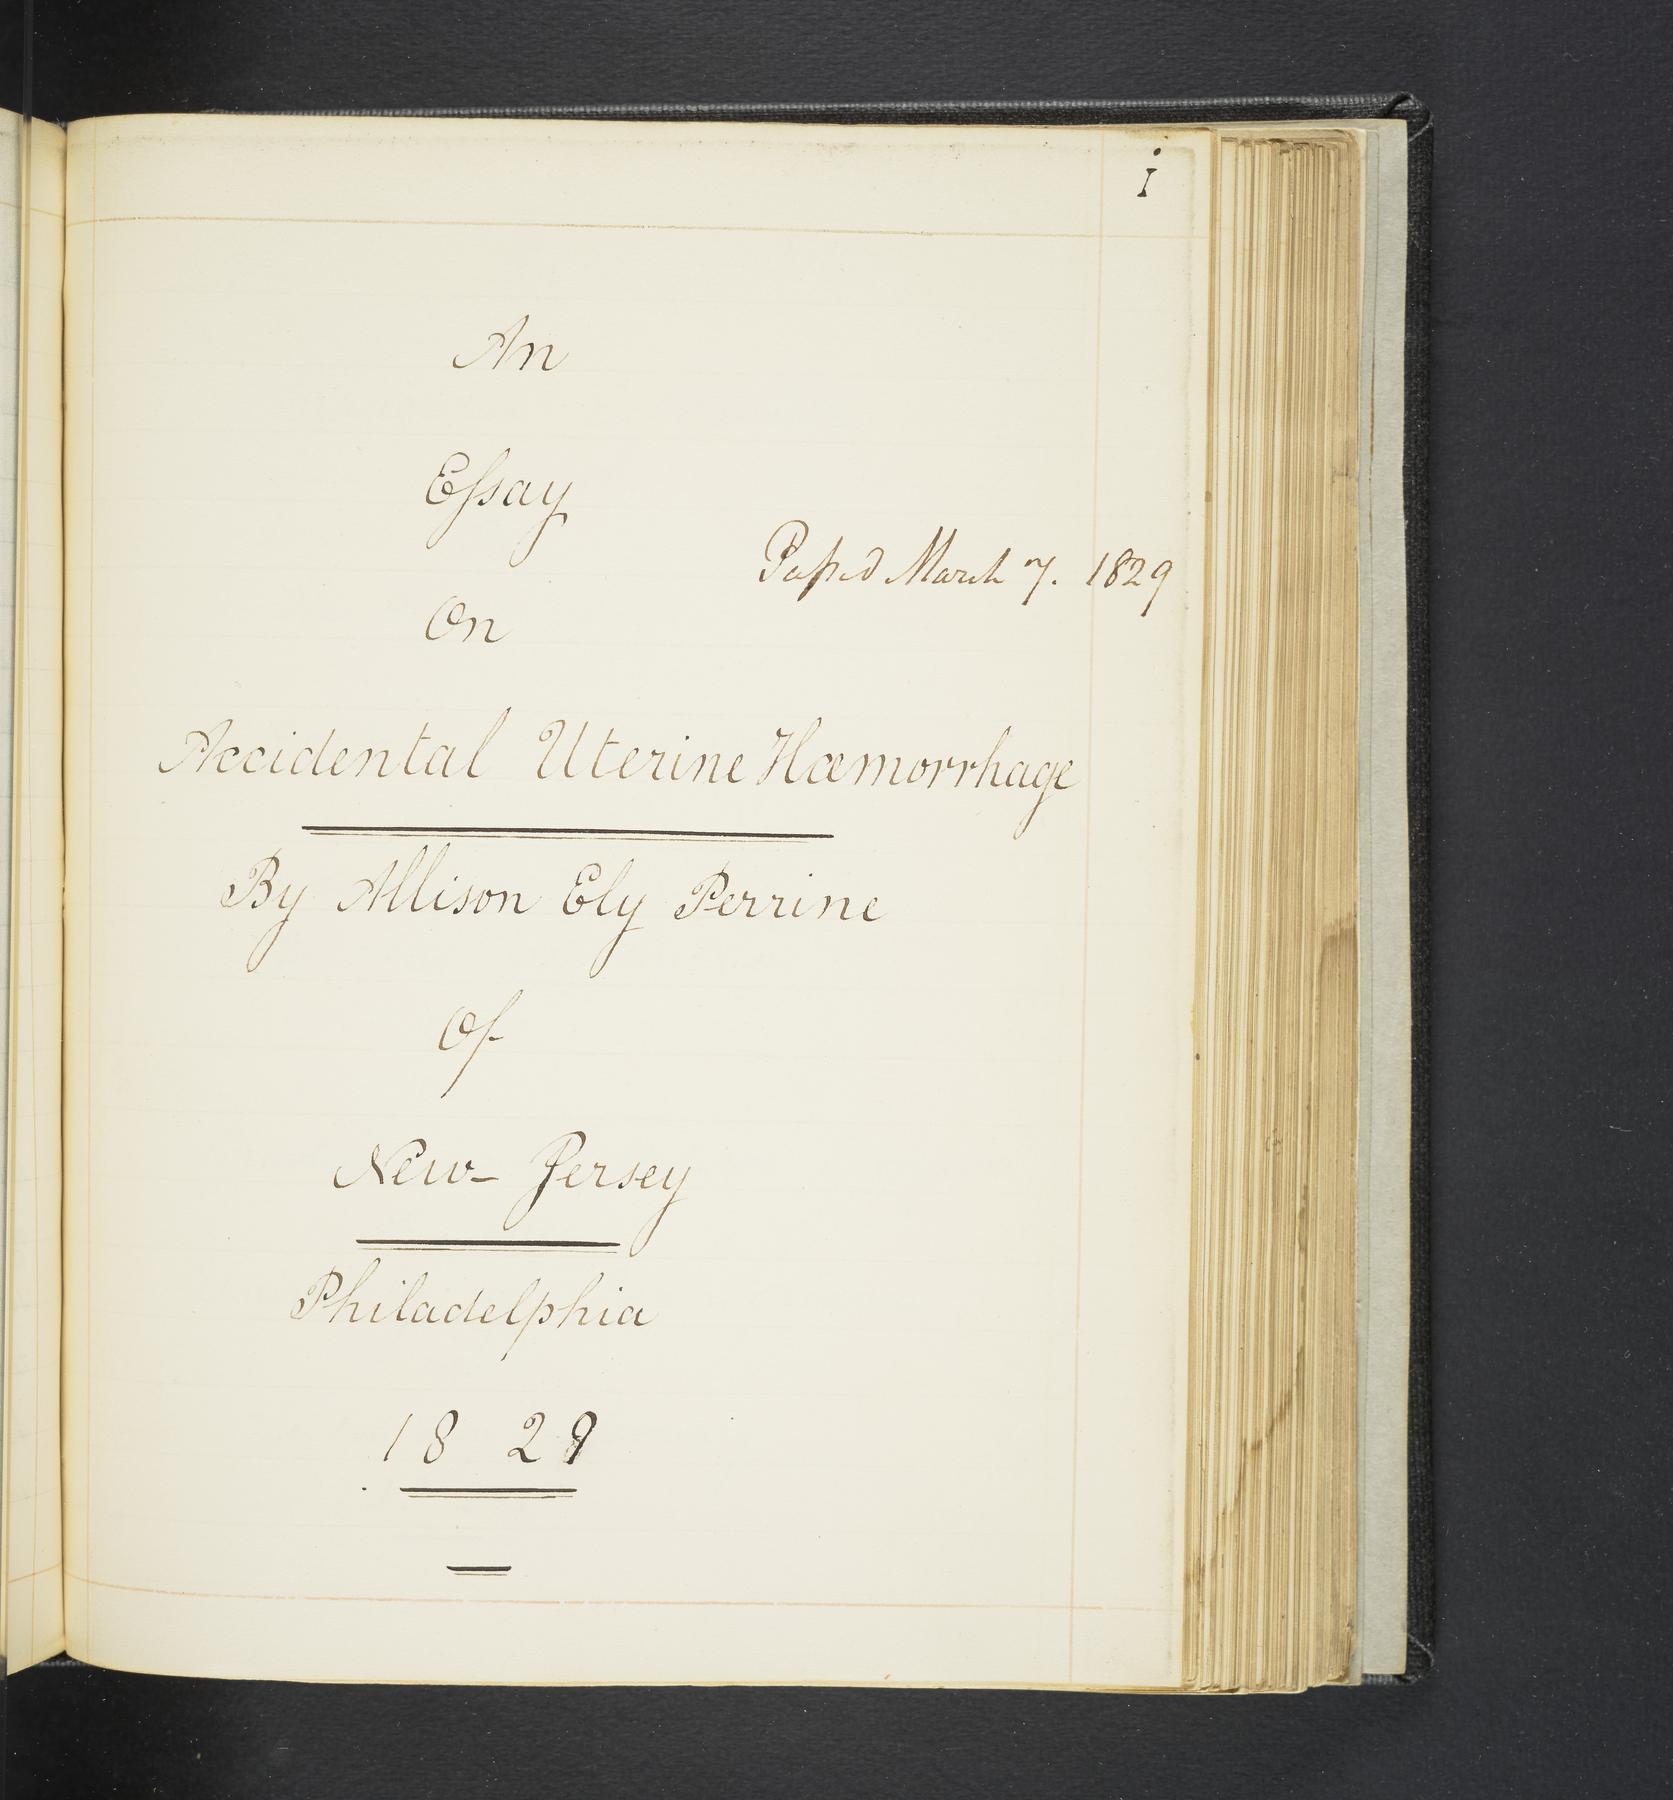 i
An
Eſsay
Paſsed March 7. 1829
On
Accidental Uterine Hæmorrhage
By Allison Ely Perrine
Of
New-Jersey
Philadelphia
1829